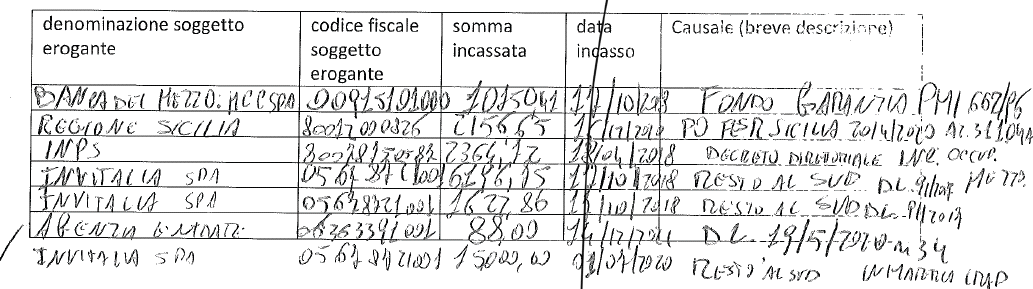 denominazione soggetto erogante codice fiscale soggetto erogante somma incassata data incasso Causale (breve descrizione)
BANCA DEL MEZZO. MCC SPA 00915101000 1015041 /10/2018 FONDO GARANZIA PMI 662/96
REGIONE SICILIA 80012000826 21566,5 PO FESR SICILIA 2014/2020 AZ.
INPS 2364,12 /04/2018 DECRETO DIRETTORIALE INC. OCCUP. MEZZO.
INVITALIA SPA 05678721001 6196,15 /10/2018 RESTO AL SUD DL. 91/2017
INVITALIA SPA 05678721001 1627,86 /10/2018 RESTO AL SUD DL. 91/2017
AGENZIA ENTRATE 06363391001 88,00 14/12/2021 DL. 19/5/2020 n 34
INVITALIA SPA 05678721001 15000,00 /07/2020 RESTO AL SUD